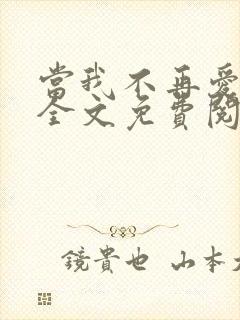 當我不再愛
全文免費閱
鏡貴也 山本